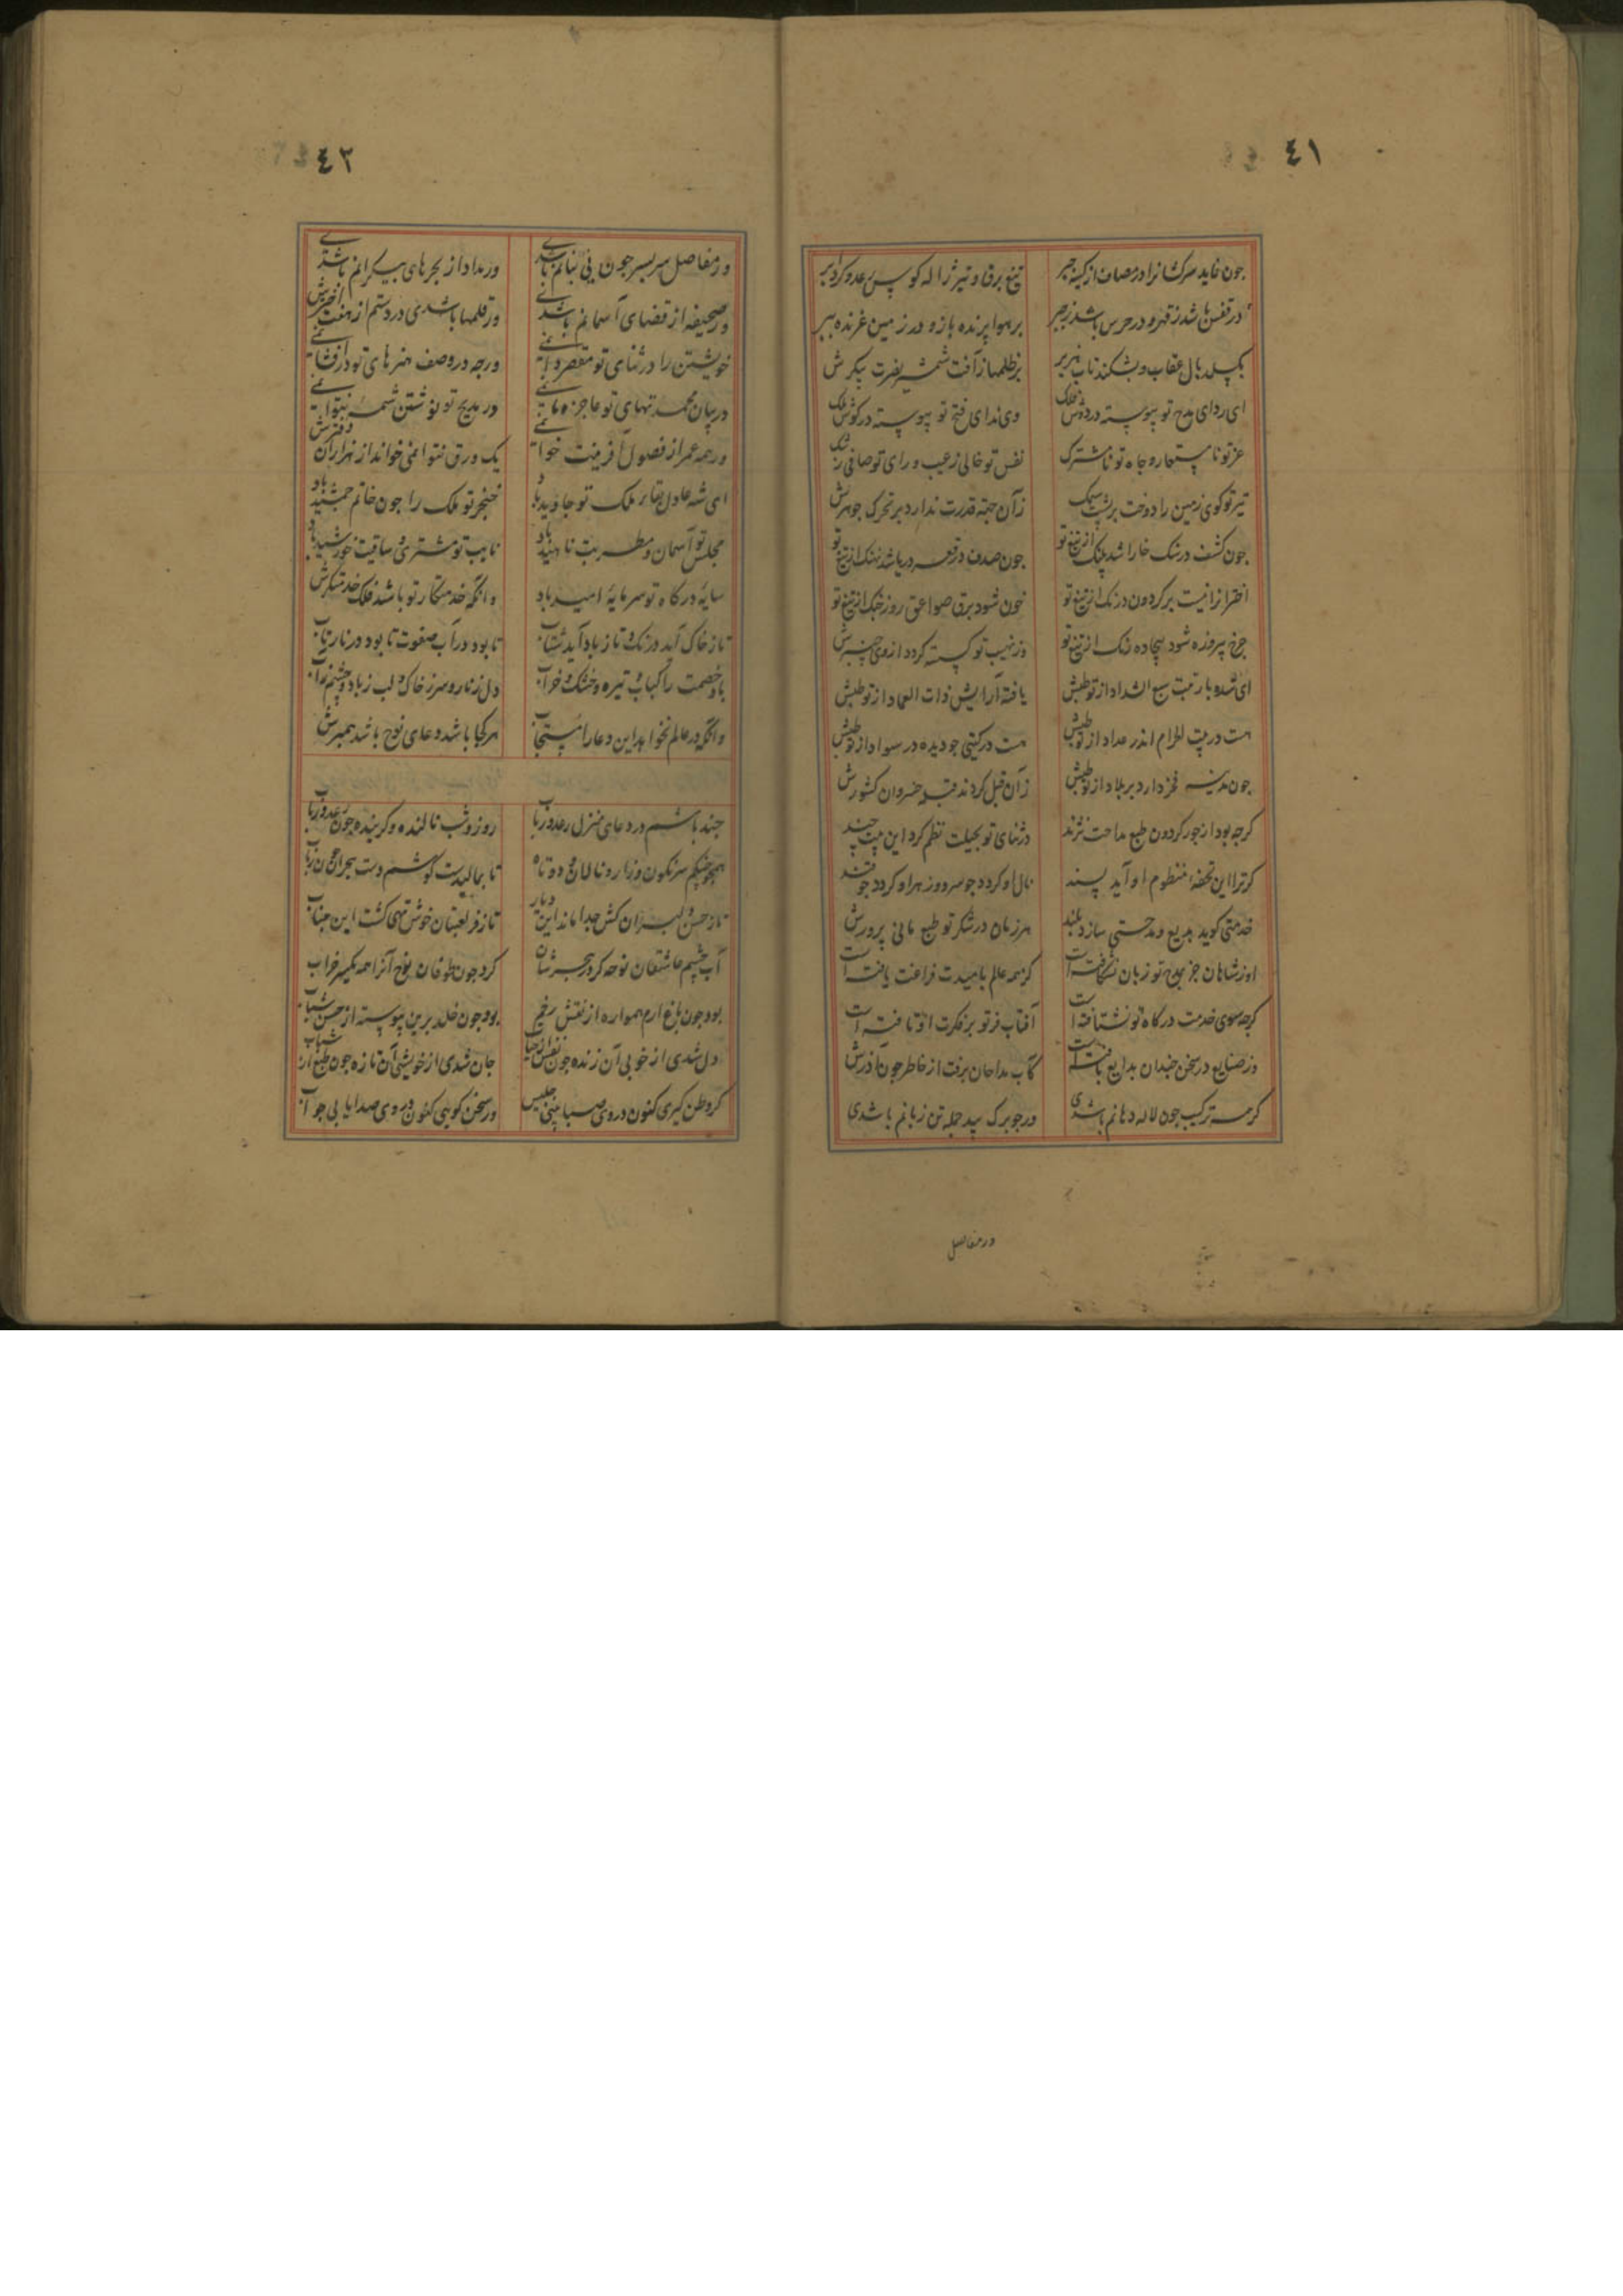 ٤١
چون نماید سرکشانرا در مصاف از کینه جبر
تیغ برق او تیر ژاله کوس رعد و کرد ابر
در قفس باشد ز قهر و در حرس باشد ز جبر
بر هوا پرنده باز و در زمین غرنده ببر
بکسلد بال عقاب و بشکند ناب هزبر
ای ردای مدح تو پیوسته در دوش فلک
وی ندای فتح تو پیوسته در کوش ملک
عز تو نا مستعار و جاه تو نا مشترک
نفس تو خالی ز عیب و رای تو صافی ز شک
تیر تو کوی زمین را دوخت بر پشت سمک
زان جبه قدرت ندارد بر تحرک جوهرش
چون کشف در سنک خارا شد پلنک از تیغ تو
چون صدف در قعر دریا شد نهنک از تیغ تو
اختران را نیست بر کردون درنک از تیغ تو
خون شود برق صواعق روز جنک از تیغ تو
چرخ پیروزه شود بیجاده رنک از تیغ تو
وز نهیب تو کسسته کردد از وی چنبرش
ای شده با رتبت سبع الشداد از تو طبش
یافته آرایش ذات العماد از تو طبش
هست در بیت الحرام اندر عداد از تو طبش
هست در کیتی چو دیده در سواد از تو طبش
چون مدینه فخر دارد بر بلاد از تو طبش
زان قبل کردند قبله خسروان کشورش
کرچه بود از جور کردون طبع مداحت نژند
در ثنای تو بحیلت نظم کرد این بیت چند
کر ترا این تحفه منظوم او آید پسند
نال او کردد چو سرو و زهر او کردد چو قند
خدمتی کوید بدیع و مدحتی سازد بلند
هر زمان در شکر تو طبع مانی پرورش
او ز شاهان جز بمدح تو زبان نشکافته است
کز همه عالم بامیدت فراغت یافته است
کرچه سوی خدمت درکاه تو نشتافته است
آفتاب فر تو بر فکرت او تافته است
وز صنایع در سخن چندان بدایع بافته است
کاب مداحان برفت از خاطر چون آذرش
کر همه ترکیب چون لاله دهانم باشدی
ور چو برک بید جمله تن زبانم باشدی
ور مفاصل
٤٢
ور مفاصل سر بسر چون نی بنانم باشدی
ور مداد از بحرهای بیکرانم باشدی
ور صحیفه از قضای آسمانم باشدی
ور قلمها باشدی در دستم از هفت اخترش
خویشتن را در ثنای تو مقصر دانمی
ورچه در وصف هنرهای تو در افشانمی
در بیان محمدتهای تو عاجز مانمی
در مدیح تو نوشتن شمه نتوانمی
ور همه عمر از فصول آفرینت خوانمی
یک ورق نتوانمی خواند از هزاران دفترش
ای شه عادل بقا بر ملک تو جاوید باد
خنجر تو ملک را چون خاتم جمشید باد
مجلس تو آسمان و مطربت ناهید باد
نایب تو مشتری و ساقیت خورشید باد
سایه درکاه تو سرمایه امید باد
وانکه خدمتکار تو باشد فلک خدمتکرش
تا ز خاک آید درنک و تا ز باد آید شتاب
تا بود در آب صفوت تا بود در نار تاب
باد خصمت را کباب و تیره و خشک و خراب
دل ز نار و سر ز خاک و لب ز باد و چشم ز آب
وانکه در عالم نخواهد این دعا را مستجاب
هر کجا باشد دعای نوح باشد همبرش
چند باشم در دعای منزل رعد و رباب
روز و شب نالنده و کرینده چون رعد و رباب
همچو چنکم سرنکون و زار و نالان و دوتاه
تا بمالیدست کوشم دست هجران چون رباب
تا ز حسن دلبران کش جدا ماند این دیار
تا ز فر لعبتان خوش تهی کشت این جناب
آب چشم عاشقان نوحه کر در هجرشان
کرد چون طوفان نوح آنرا همه یکسر خراب
بود چون باغ ارم همواره از نقش رقم
بود چون خلد برین پیوسته از حسن شباب
دل شدی از خوبی آن زنده چون نفس از حیات
جان شدی از خویشی آن تازه چون طبع از شباب
کر وطن کیری کنون در وی صبا بینی جلیس
ور سخن کویی کنون در وی صدا یابی جواب